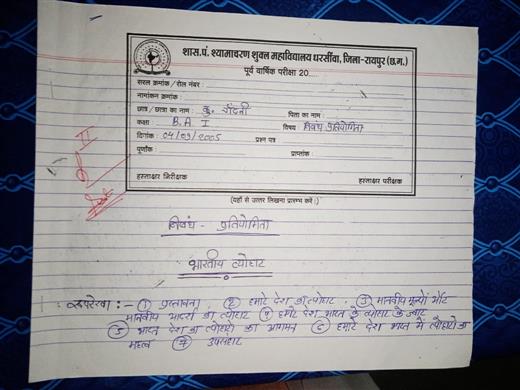 शास.पं. श्यामाचरण शुक्ल महाविद्यालय धरसींवा, जिला-रायपुर (छ.ग.)
पूर्व वार्षिक परीक्षा 20.....
सरल क्रमांक / रोल नंबर :
नामांकन क्रमांक :
छात्र / छात्रा का नाम : कु. चाँदनी पिता का नाम :
कक्षा : B.A I विषय निबंध प्रतियोगिता
दिनांक : 04/09/2005 प्रश्न पत्र
पूर्णांक : प्राप्तांक :
हस्ताक्षर निरीक्षक हस्ताक्षर परीक्षक
(यहाँ से उत्तर लिखना प्रारम्भ करें।)
निबंध - प्रतियोगिता
भारतीय त्योहार
रूपरेखा :- ① प्रस्तावना ② हमारे देश का त्योहार . ③ मानवीय मूल्यों और
मानवीय आदर्श का त्योहार ④ हमारे देश भारत के त्योहार के प्रकार
⑤ भारत देश का त्योहारों का आगमन ⑥ हमारे देश भारत में त्योहारों का
महत्व ⑦ उपसंहार